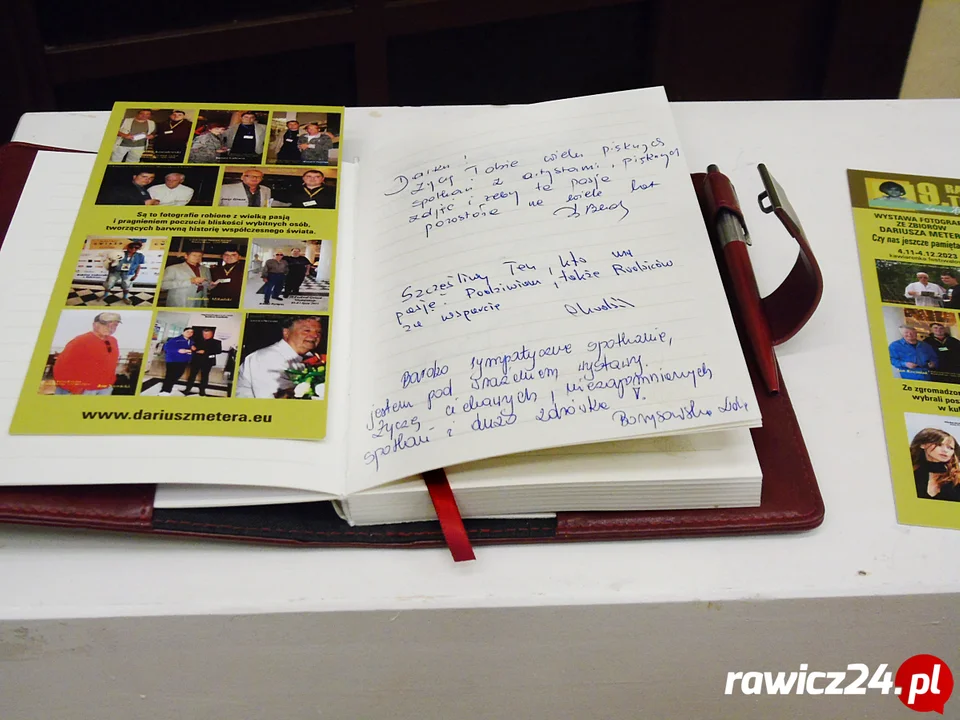 Są to fotografie robione z wielką pasją
i pragnieniem poczucia bliskości wybitnych osób,
tworzących barwną historię współczesnego świata.
www.dariuszmetera.eu
Darku!
Życzę Tobie wielu pięknych
spotkań z artystami, pięknych
zdjęć i żeby te pasje
pozostałe na wiele lat
Szczęśliwy Ten, kto ma
pasję. Podziwiam, także Rodziców
za wsparcie
Bardzo sympatyczne spotkanie,
jestem pod wrażeniem wystawy.
Życzę ciekawych i niezapomnianych
spotkań i dużo zdrówka
Borysowska
9
WYSTAWA FOTOGRAF
ZE ZBIORÓW
DARIUSZA METER
Czy nas jeszcze pamięta
4.11-4.12.2023
Ze zgromadzo
wybrali pos
w ku
rawicz24.pl